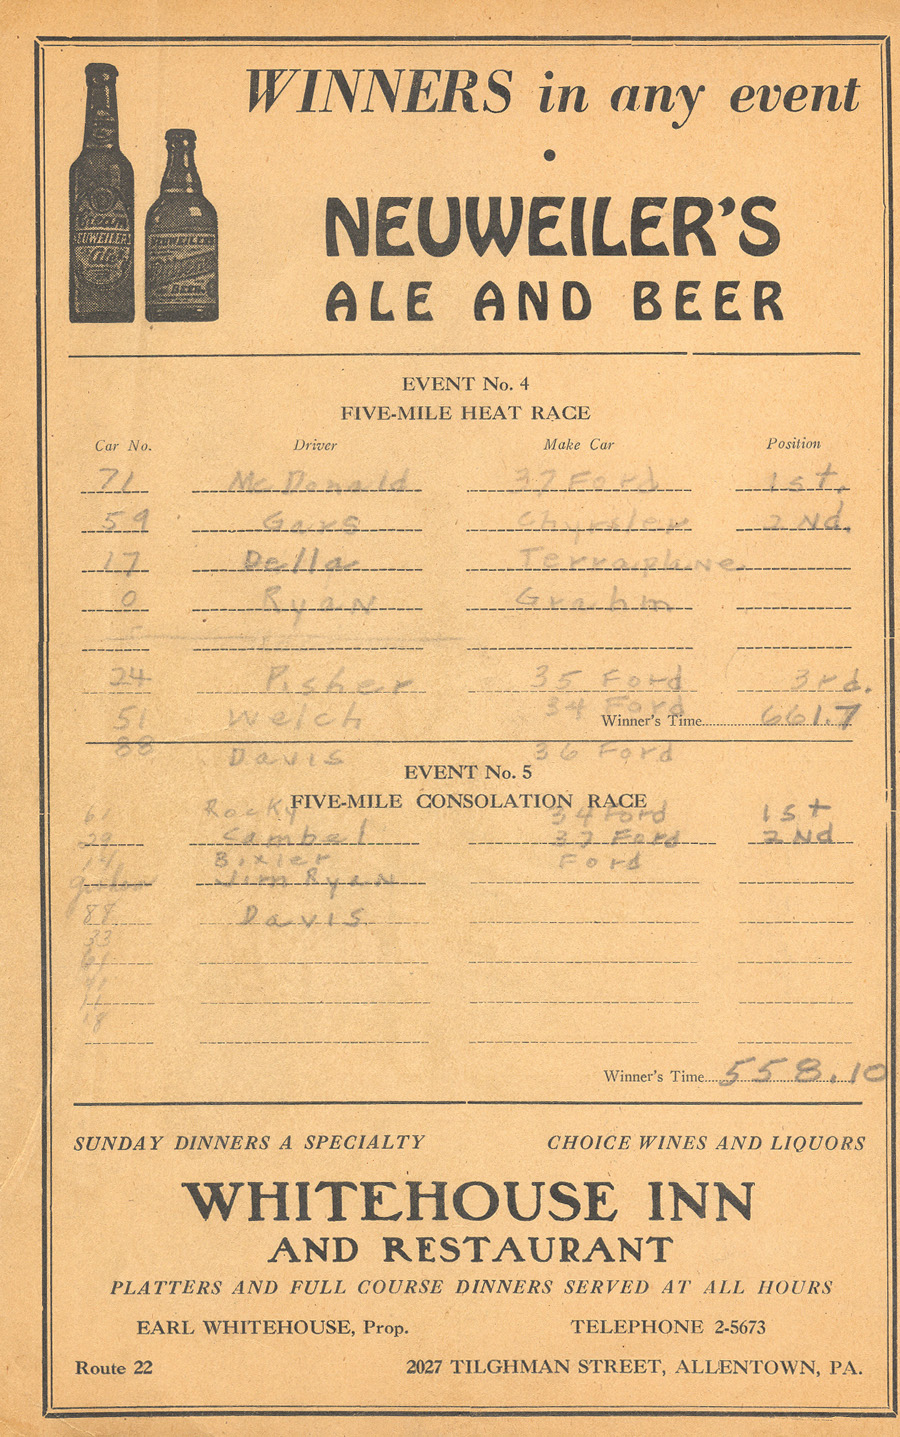 WINNERS in any event
NEUWEILER'S
ALE AND BEER
Cream
NEUWEILER'S
Ale
NEUWEILER'S
BEER
EVENT No. 4
FIVE-MILE HEAT RACE
Car No. Driver Make Car Position
71 McDonald 37 Ford 1st.
59 Gars Chyrsler 2Nd.
17 Della Terraplane.
0 Ryan Grahm
24 Fisher 35 Ford 3rd.
51 Welch 34 Ford Winner's Time 661.7
88 Davis 36 Ford
EVENT No. 5
FIVE-MILE CONSOLATION RACE
61 Rocky 34 Ford 1st
29 Cambel 37 Ford 2Nd
14 Bixler Ford
Jim Ryan
88 Davis
33
61
91
11
18
Winner's Time 558.10
SUNDAY DINNERS A SPECIALTY CHOICE WINES AND LIQUORS
WHITEHOUSE INN
AND RESTAURANT
PLATTERS AND FULL COURSE DINNERS SERVED AT ALL HOURS
EARL WHITEHOUSE, Prop. TELEPHONE 2-5673
Route 22 2027 TILGHMAN STREET, ALLENTOWN, PA.